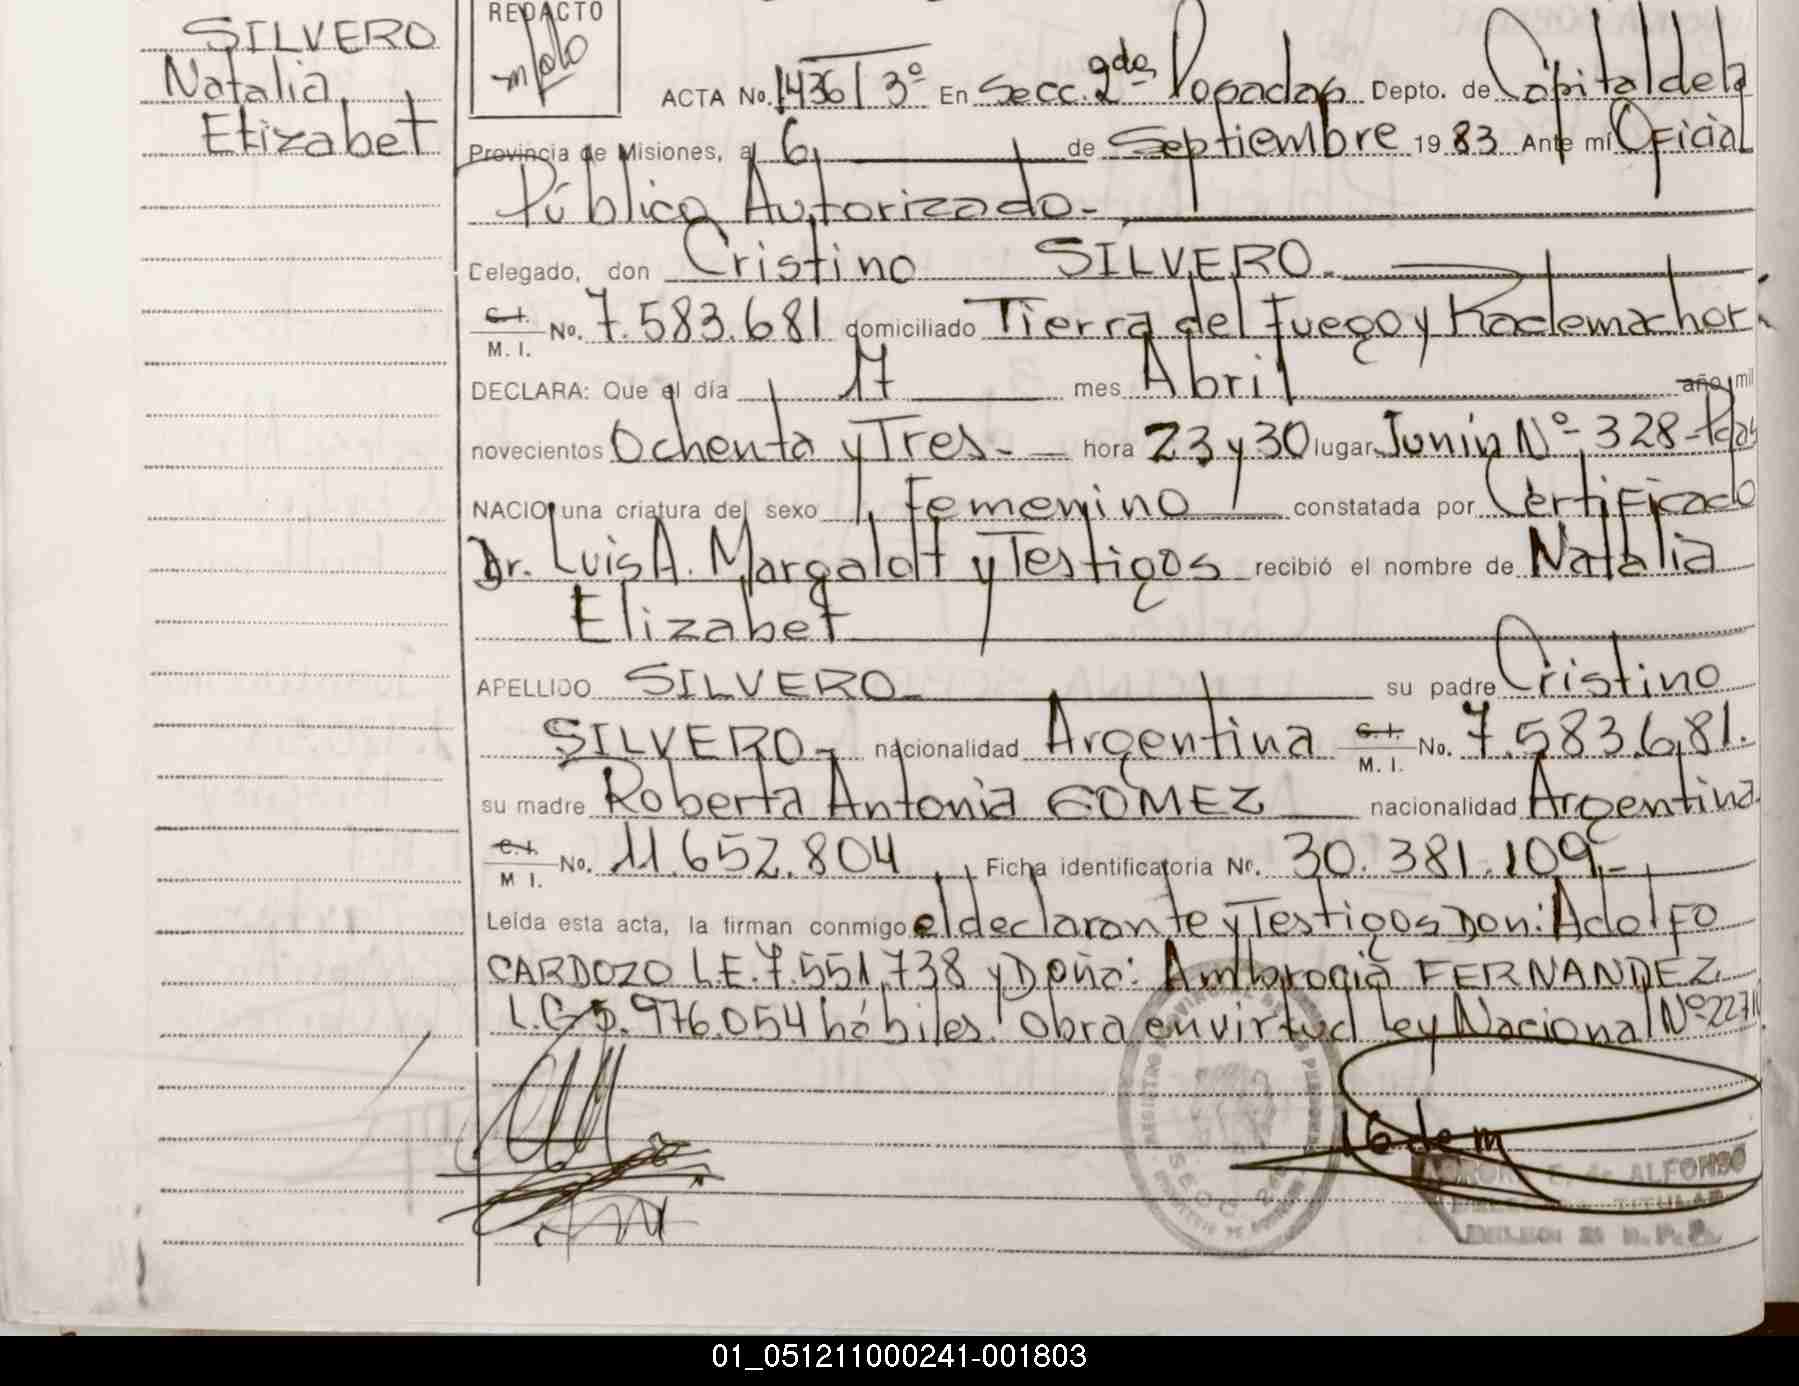 SILVERO
Natalia
Elizabet
REDACTO
ACTA No. 1436 / 3º En Secc. 2da Posadas Depto. de Capital de la
Provincia de Misiones, a 6 de Septiembre 19 83 Ante mí Oficial
Público Autorizado-
Delegado, don Cristino SILVERO-
C.I. M. I. No. 7.583.681 domiciliado Tierra del Fuego y
DECLARA: Que el día 17 mes Abril año mil
novecientos Ochenta y Tres- hora 23 y 30 lugar Junín Nº 328-Pdas
NACIO una criatura del sexo Femenino constatada por Certificado
Dr. Luis A. Margalott y Testigos recibió el nombre de Natalia
Elizabet
APELLIDO SILVERO- su padre Cristino
SILVERO- nacionalidad Argentina C.I. M. I. No. 7.583.681.
su madre Roberta Antonia GOMEZ nacionalidad Argentina
C.I. M I. No. 11.652.804 Ficha identificatoria No. 30.381.109-
Leída esta acta, la firman conmigo el declarante y Testigos Don: Adolfo
CARDOZO L.E. 7.551.738 y Doña: Ambrogia FERNANDEZ
L.C 5.976.054 hábiles. Obra en virtud Ley Nacional Nº
ALFONSO
TITULAR
01_051211000241-001803